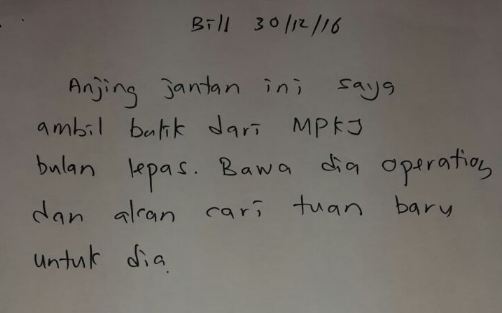 Bill 30/12/16
Anjing jantan ini saya
ambil balik dari MPKJ
bulan lepas. Bawa dia operation
dan akan cari tuan baru
untuk dia.